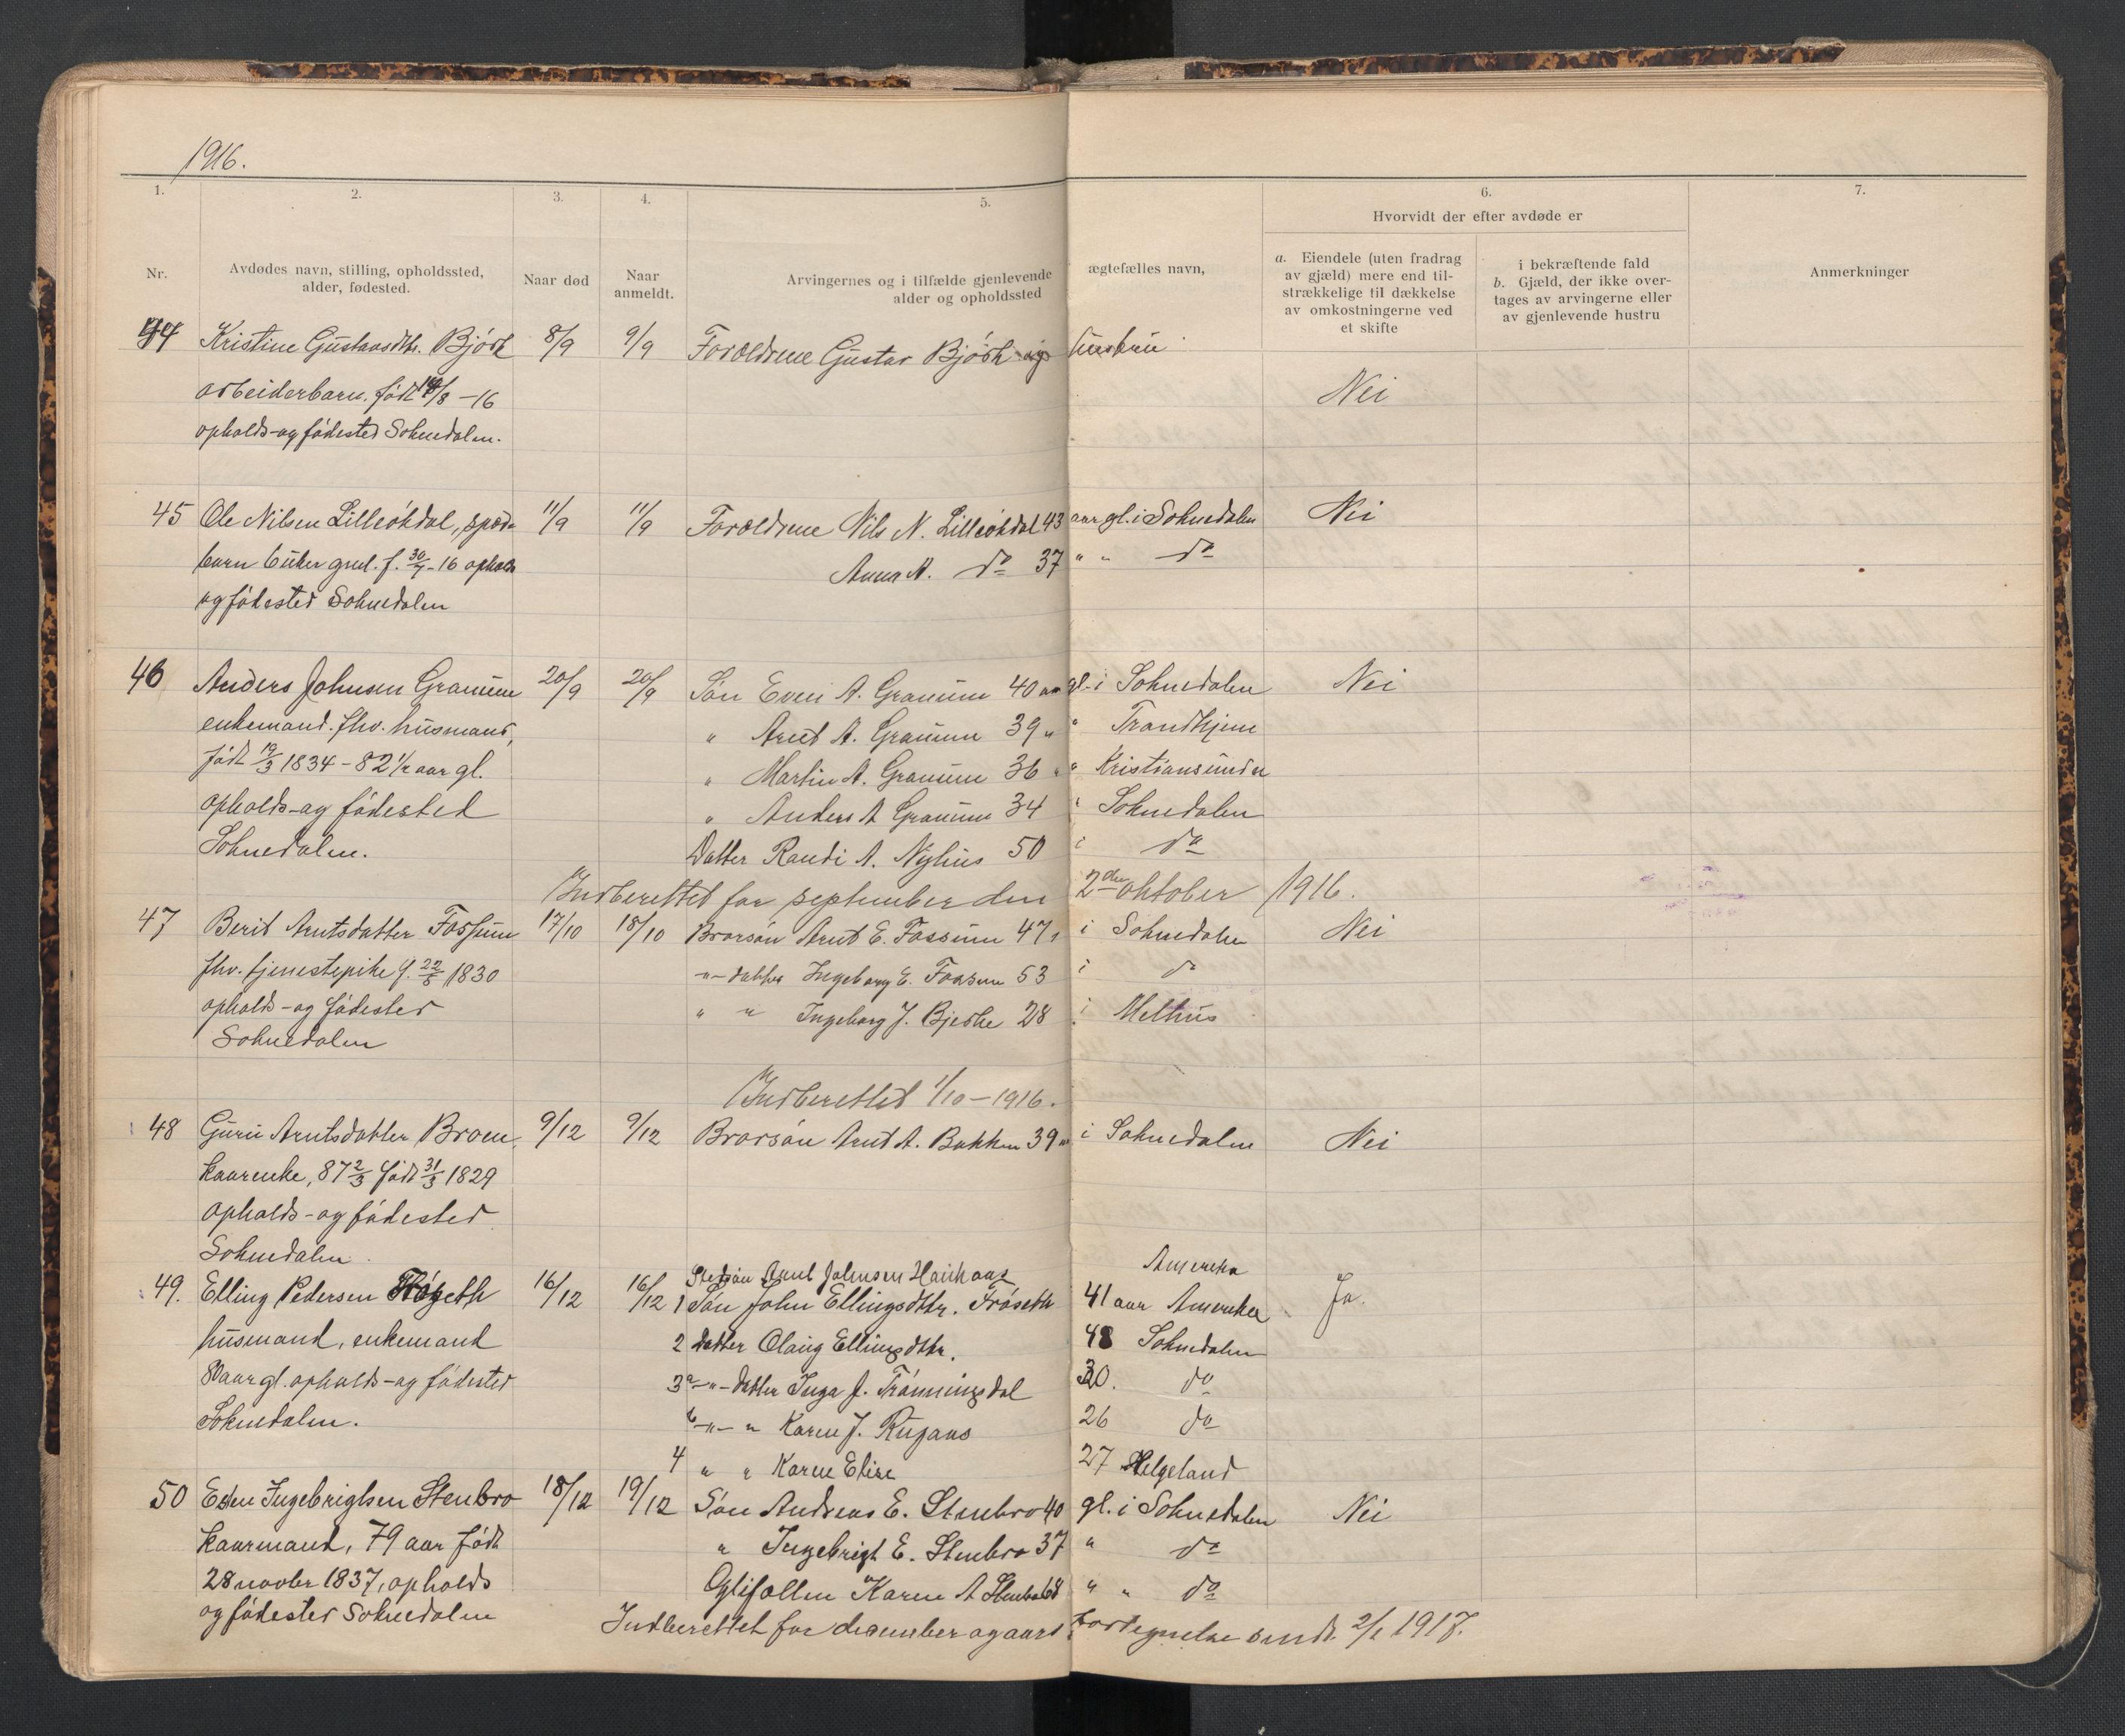 1916.
1. 2. 3. 4. 5. 6. 7.
Hvorvidt der efter avdøde er
Nr.
Avdødes navn, stilling, opholdssted,
alder, fødested.
Naar død
Naar
anmeldt.
Arvingernes og i tilfælde gjenlevende ægtefælles navn,
alder og opholdssted
a. Eiendele (uten fradrag
av gjæld) mere end til-
strækkelige til dækkelse
av omkostningerne ved
et skifte
i bekræftende fald
b. Gjæld, der ikke over-
tages av arvingerne eller
av gjenlevende hustru
Anmerkninger
44 Kristine Gustavsdtr. Bjørk 8/9 9/9 Forældrene Gustav Bjørk og hustru
arbeiderbarn, født 14/8 -16 Nei
opholds- og fødested Soknedalen.
45 Ole Nilsen Lilleøkdal, spæd- 11/9 11/9 Forældrene Nils N. Lilleøkdal 43 aar gl. i Soknedalen Nei
barn 6 uker gml. f. 30/7 - 16 opholds Anna N. do 37 " " do
og fødested Soknedalen
46 Anders Johnsen Granum 20/9 20/9 Søn Even A. Granum 40 aar gl. i Soknedalen Nei
enkemand. fhv. husmand, " Arnt A. Granum 39 " " Trondhjem
født 19/3 1834 - 82 1/2 aar gl. " Martin A. Granum 36 " " Kristiansund n
opholds- og fødested " Anders A Granum 34 " Soknedalen
Soknedalen. Datter Randi A. Nyhus 50 i do
Indberettet for september den 2den oktober 1916.
47 Berit Arntsdatter Fossum 17/10 18/10 Brorsøn Arnt E. Fossum 47 i Soknedalen Nei
fhv. tjenestepike f. 22/5 1830 -"- datter Ingeborg E. Fossum 53 i do
opholds- og fødested " " Ingeborg J. Bjerke 28 i Melhus
Soknedalen
Indberettet 1/10 - 1916.
48 Guru Arntsdatter Broen, 9/12 9/12 Brorsøn Arnt A. Bakken 39 " i Soknedalen Nei
kaarenke, 87 2/3 født 31/3 1829
opholds- og fødested
Soknedalen.
Stedsøn Arnt Johnsen Amerika
49. Elling Pedersen 16/12 16/12 1 Søn John Ellingsdttr. Frøseth 41 aar Amerika Ja.
husmand, enkemand 2 datter Olaug Ellingsdttr. 48 Soknedalen
80 aar gl. opholds- og fødested 3 a -"- datter Inga J. Trønningsdal 30. do
Soknedalen. b -"- " Karen J. Rugaas 26 do
4 " " Karen Elise 27 Helgeland
50 Esten Ingebrigtsen Stenbro 18/12 19/12 Søn Andreas E. Stenbro 40 gl. i Soknedalen Nei
kaarmand, 79 aar født " Ingebrigt E. Stenbro 37 " do
28 novbr 1837, opholds Egtfællen Karen A Stenbro 68 " " do
og fødested Soknedalen
Indberettet for december og aarsfortegnelse sendt. 2/1 1917.